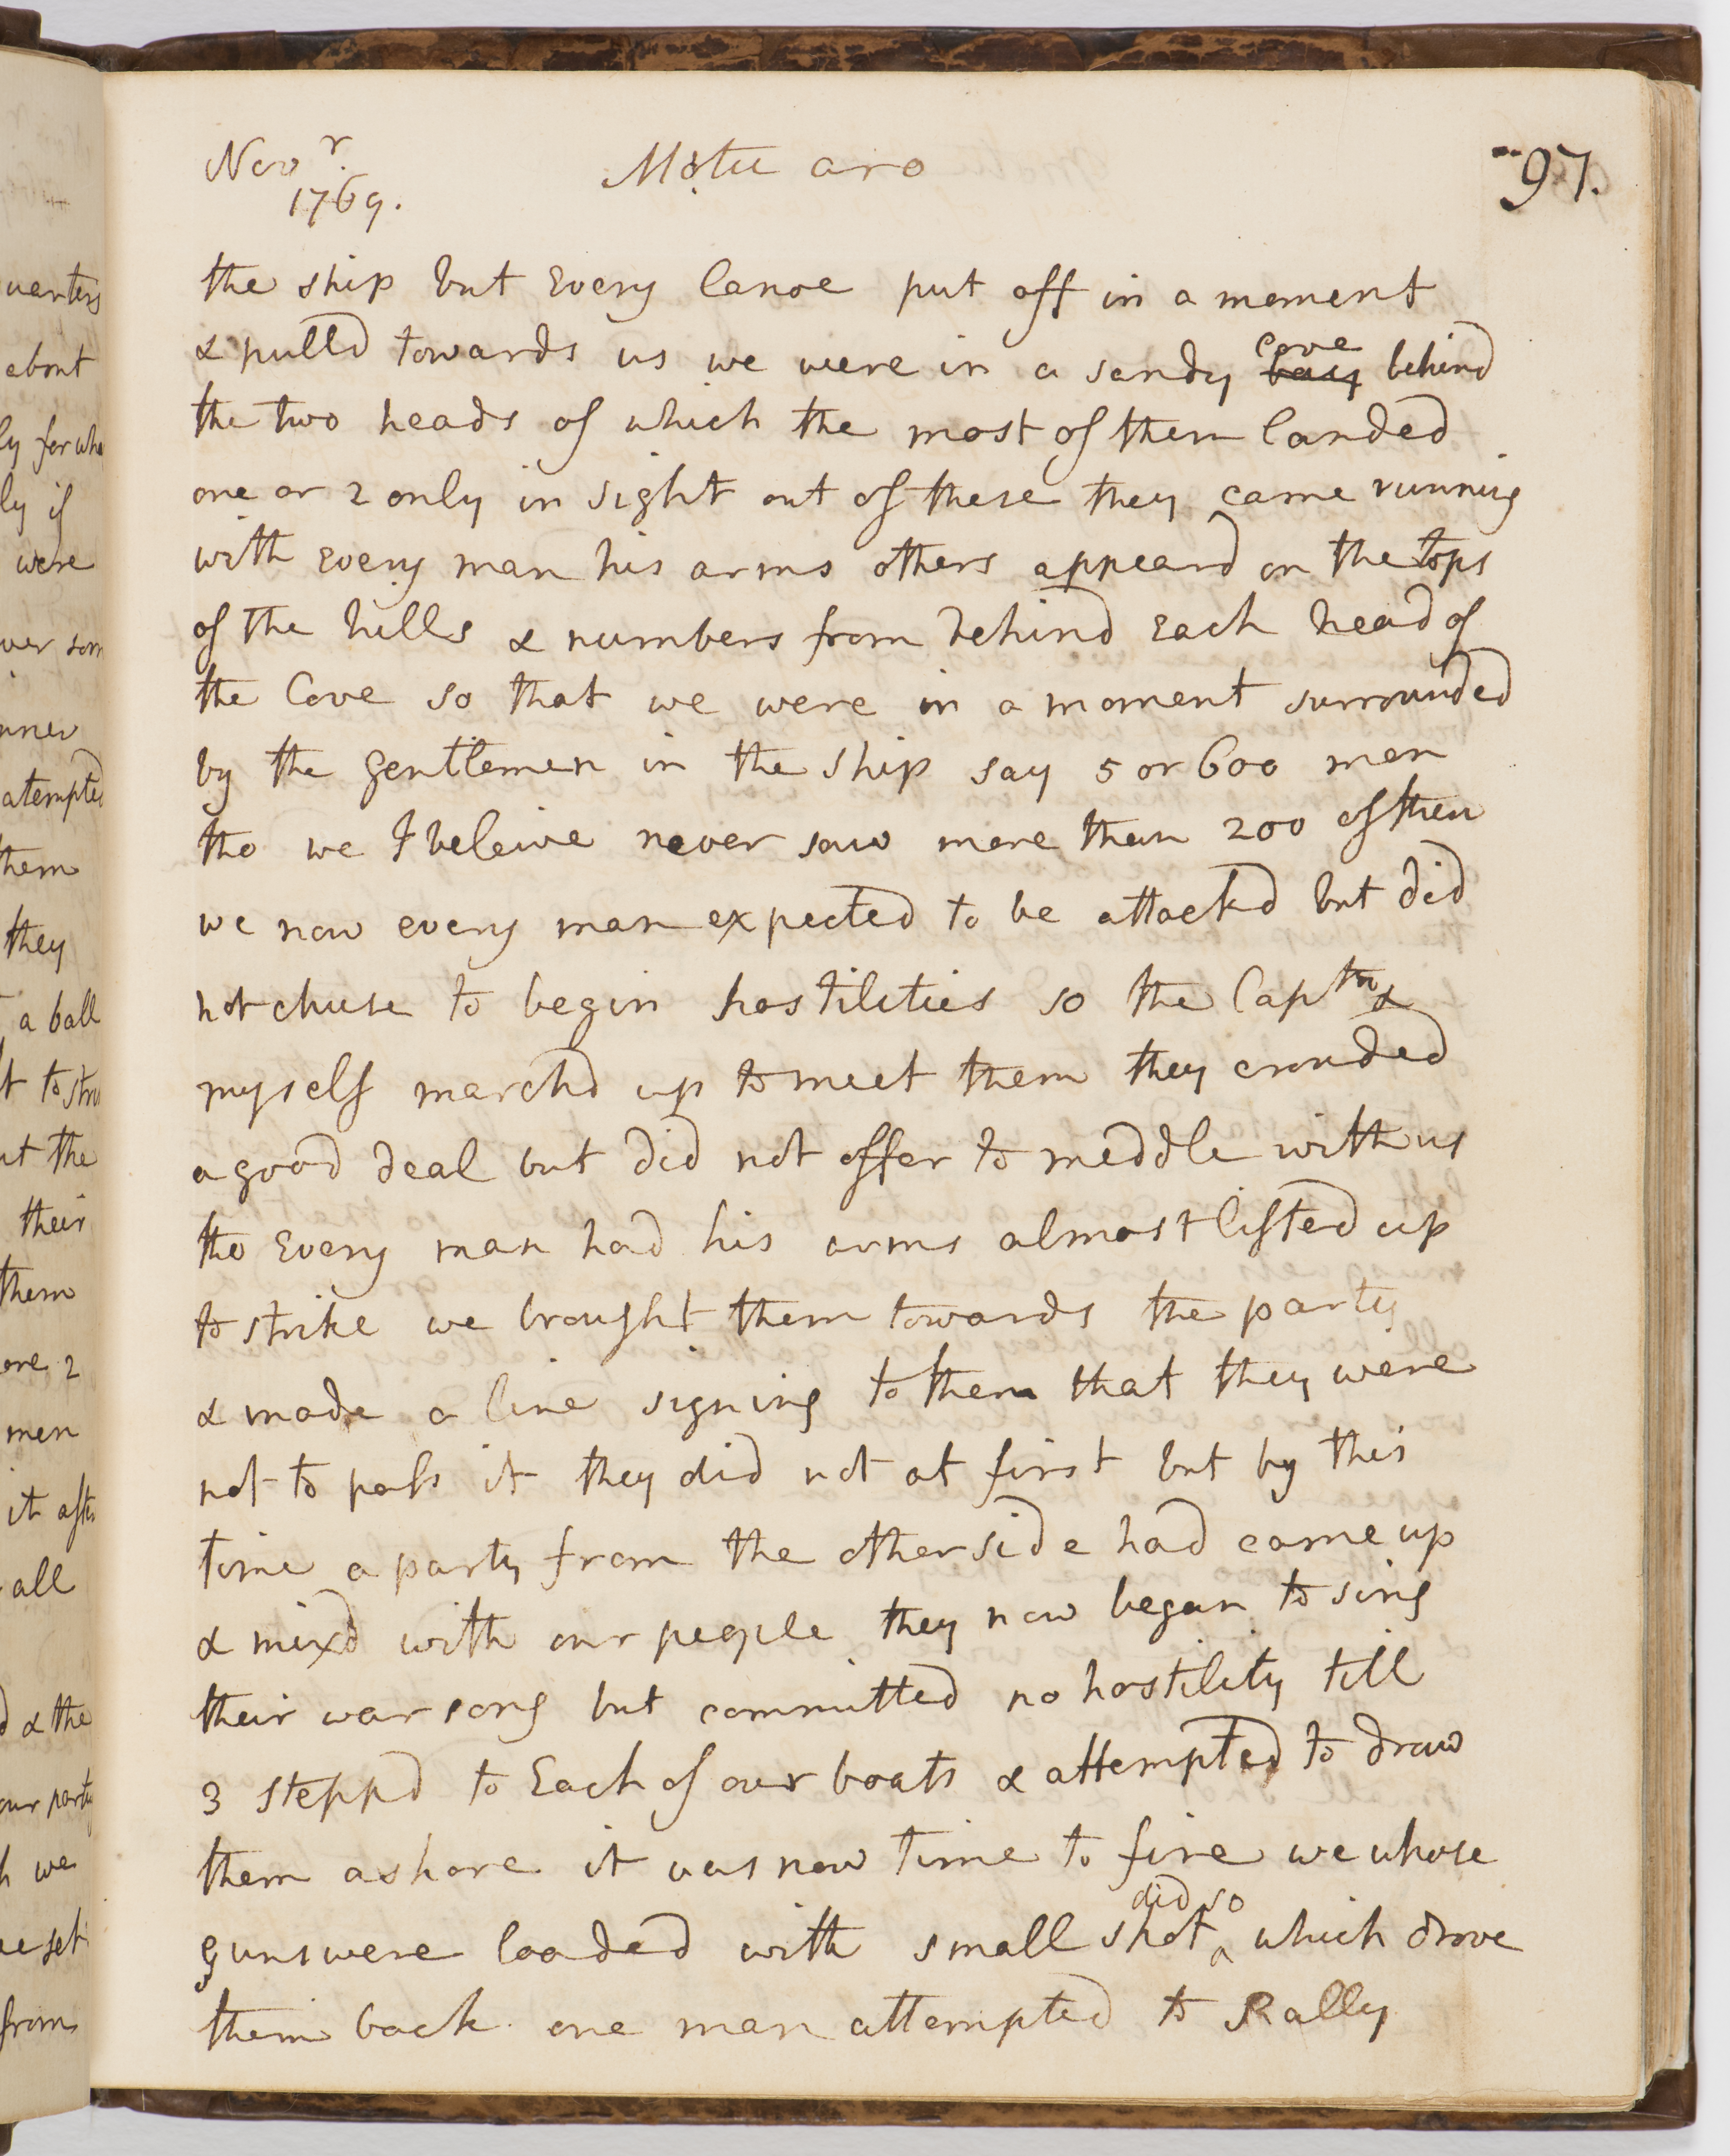 Novr.
1769.
Motu aro
97.
the ship but Every Canoe put off in a moment
& pulld towards us we were in a sandy bay cove behind
the two heads of which the most of them landed
one or 2 only in sight out of these they came running
with Every man his arms others appeard on the tops
of the hills & numbers from behind Each head of
the Cove so that we were in a moment surrounded
by the gentlemen in the ship say 5 or 600 men
tho we I beleive never saw more than 200 of them
we now every man expected to be attackd but did
not chuse to begin hostilities so the Captn &
myself marchd up to meet them they crouded
a good deal but did not offer to meddle with us
tho Every man had his arms almost lifted up
to strike we brought them towards the party
& made a line signing to them that they were
not to pass it they did not at first but by this
time a party from the other side had come up
& mixd with our people they now began to sing
their war song but committed no hostility till
3 steppd to Each of our boats & attempted to draw
them ashore it was now time to fire we whose
guns were loaded with small shot did so ^ which drove
them back one man attempted to Rally
uarters
about
ly for who
ly if
were
inner
atempted
them
they
a ball
ut the
their
them
one 2
men
it afte
all
& the
our party
we
from